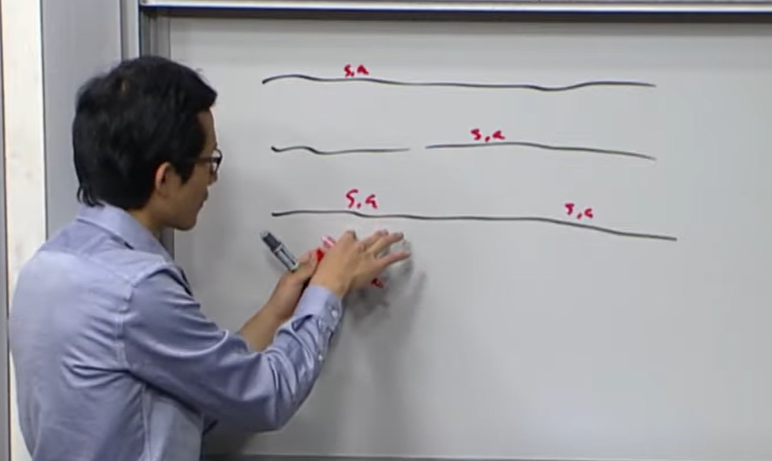 s,a
s,a
s,a s,a